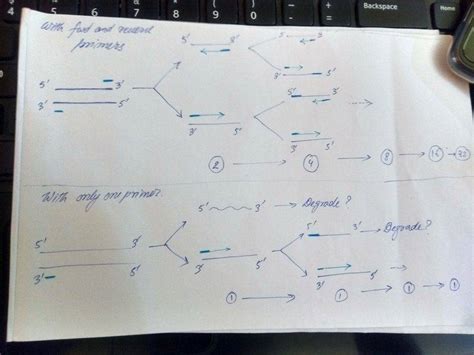 With fwd and reverse
primers
5' 3'
3' 5'
5' 3'
3' 5'
5' 3'
3' 5'
5' 3'
3' 5'
2 → 4 → 8 → 16 → 32
With only one primer.
5' 3' → Degrade?
5' 3'
3' 5'
3' 5'
5' 3' → Degrade?
3' 5'
1 → 1 → 1 → 1
Backspace
Home